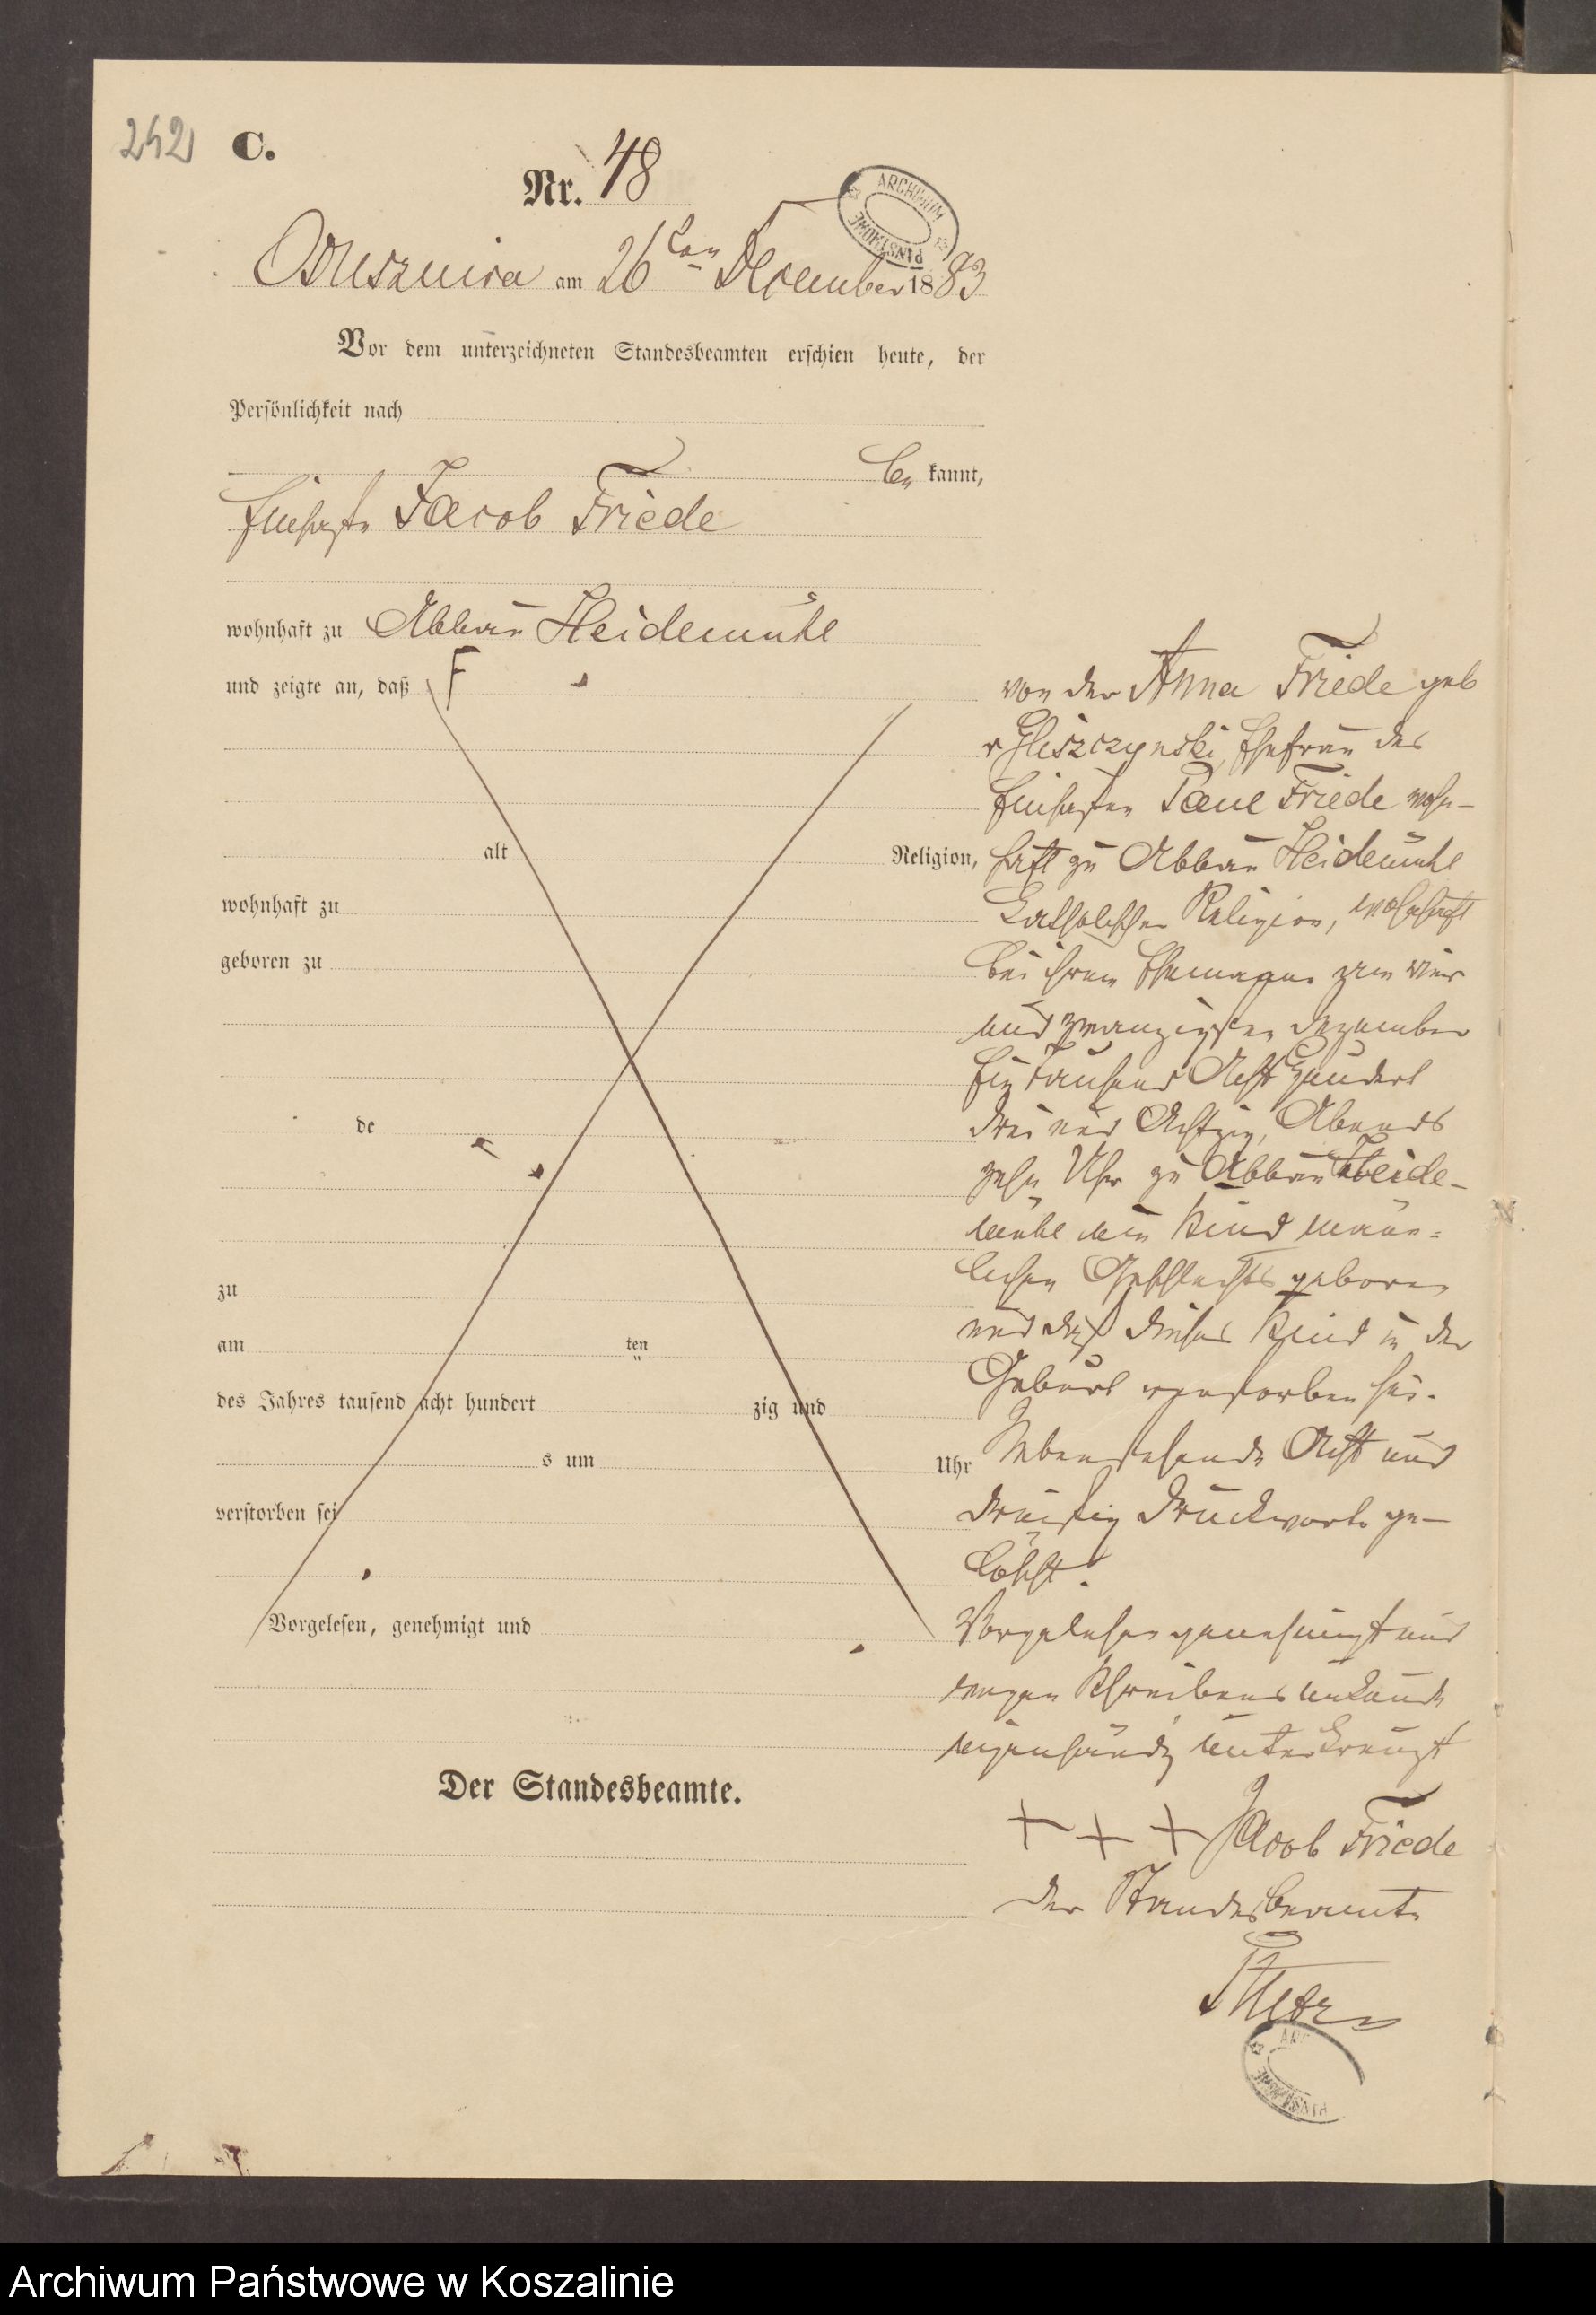 242
C.
Nr. 48
ARCHIWUM PAŃSTWOWE
am 26ten December 1883
Vor dem unterzeichneten Standesbeamten erschien heute, der
Persönlichkeit nach
be kannt,
Jacob Friede
wohnhaft zu Abbau Heidemühl
und zeigte an, daß F
alt Religion,
wohnhaft zu
geboren zu
de
zu
am ten
des Jahres tausend acht hundert zig und
s um Uhr
verstorben sei
Vorgelesen, genehmigt und
Der Standesbeamte.
von der Anna Friede geb
v Gliszczynski, Ehefrau des
Paul Friede wohn-
haft zu Abbau Heidemühl
Katholischer Religion, wohnhaft
bei ihrem Ehemanne am vier
und zwanzigsten Dezember
Ein Tausend Acht Hundert
drei und Achtzig, Abends
zehn Uhr zu Abbau Heide-
mühl ein Kind männ-
lichen Geschlechts geboren
und daß dieses Kind in der
Geburt verstorben sei.
Nebenstehende Acht und
dreißig Druckworte ge-
löscht.
Vorgelesen genehmigt und
wegen Schreibensunkunde
eigenhändig unterkreuzt
+ + + Jacob Friede
Der Standesbeamte
Archiwum Państwowe w Koszalinie